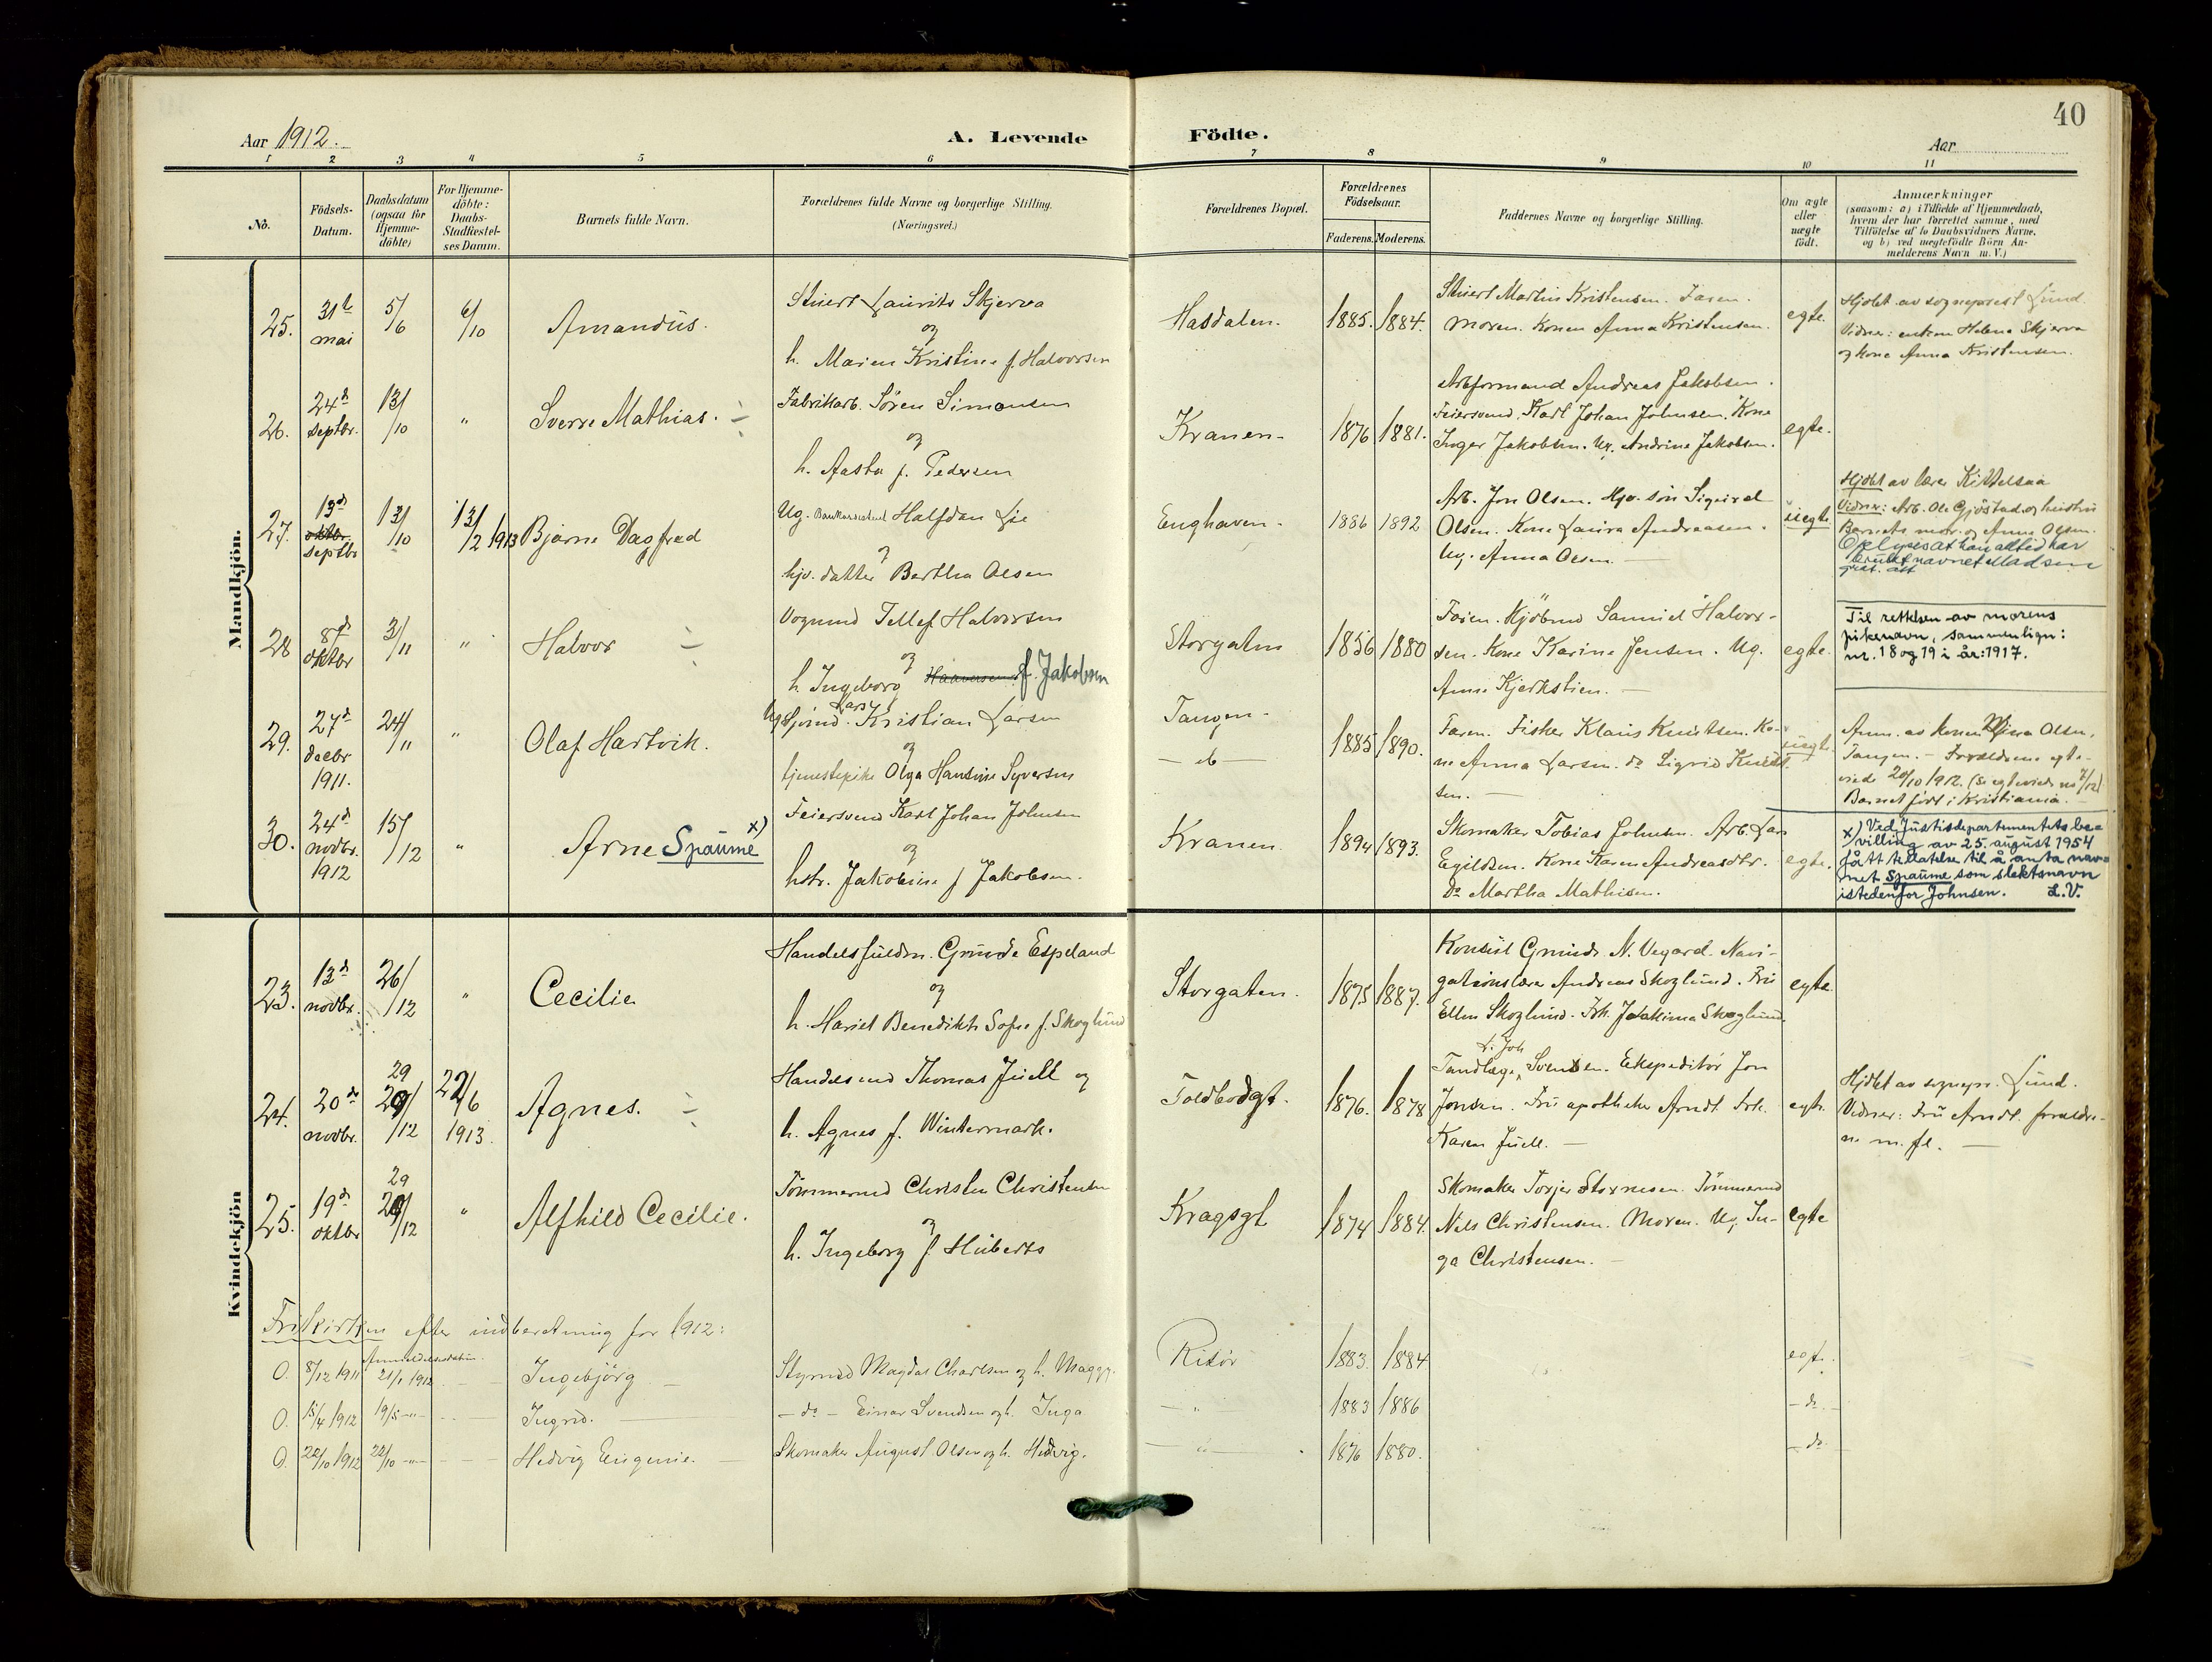 40
Aar 1912.
A. Levende Födte.
Aar
1 2 3 4 5 6 7 8 9 10 11
No.
Födsels-
Datum.
Daabsdatum
(ogsaa for
Hjemme-
döbte)
For Hjemme-
döbte:
Daabs-
Stadfæstel-
ses Datum.
Barnets fulde Navn.
Forældrenes fulde Navne og borgerlige Stilling.
(Næringsvei.)
Forældrenes Bopæl.
Forældrenes
Födselsaar.
Faderens. Moderens.
Faddernes Navne og borgerlige Stilling.
Om ægte
eller
uægte
födt.
Anmærkninger
(saasom: a) i Tilfælde af Hjemmedaab,
hvem der har forrettet samme, med
Tilföielse af to Daabsvidners Navne,
og b) ved uægtefödte Börn An-
melderens Navn m. V.)
Mandkjön.
25.
31te
mai
5/6
6/10
Amandus.
Stuert Laurits Skjerva
og
h. Maren Kristine f. Halvorsen
Hasdalen.
1885. 1884.
Stuert Martin Kristensen. Faren.
Moren. Konen Anna Kristensen.
egte.
Hjdbt. av sogneprest Lund.
Vidner: enken Helene Skjerva
og kone Anna Kristensen.
26.
24d
septbr.
13/10
"
Sverre Mathias.
Fabrikarb. Sören Simonsen
og
h. Aasta f. Pedersen
Kranen.
1876 1881.
Arbformand Andreas Jakobsen.
Feiersvend Karl Johan Johnsen. Kone
Inger Jakobsen. Ug. Andrine Jakobsen.
egte.
27.
13d
oktbr.
septbr
13/10
13/2 1913
Bjarne Dagfred
Ug. Bankassistent Halfdan Lie
og
hjv. datter Bertha Olsen
Enghaven.
1886 1892
Arb. Jon Olsen. Hjv. sön Sigurd
Olsen. Kone Laura Andreasen.
Ug. Anna Olsen.
uegte.
Hjdbt av lærer Kittelsaa
Vidner: Arb. Ole Gjöstad og hustru
Barnets mor og Anna Olsen.
Oplyses at han altid har
brukt navnet Madsen
28
8d
oktbr
3/11
"
Halvor
Vognmd Tellef Halvorsen
og
h Ingeborg Haavorsen f. Jakobsen
Storgaten
1856 1880
Faren. Kjöbmd Samuel Halvor-
sen. Kone Karine Jensen. Ug.
Anne Kjerkstien.
egte.
Til rettelse av morens
pikenavn, sammenlign:
nr. 18 og 19 i år: 1917.
29.
27d
decbr
1911.
24/11
"
Olaf Hartvik.
Ug. Sjömd. Lars Kristian Larsen
og
tjenestepike Olga Hansine Syversen
Tangen.
— do —
1885 1890.
Faren. Fisker Klaus Knutsen. Ko-
ne Anna Larsen. do Sigrid Knudt
sen.
uegte.
Anm. av konen Mina Olsen,
Tangen. — Forældrene egte-
viede 20/10 1912. (Se egteviede no 7/12)
Barnet födt i Kristiania.
30.
24d
novbr.
1912
15/12
"
Arne Spaume x)
Feiersvend Karl Johan Johnsen
og
hstr. Jakobine f Jakobsen.
Kranen
1894 1893.
Skomaker Tobias Johnsen. Arb. Lars
Egildsen. Kone Karen Andreasdtr.
Do Martha Mathisen.
egte.
x) Ved Justisdepartementets be-
villing av 25. august 1954
fått tillatelse til å anta nav-
net Spaume som slektsnavn
istedenfor Johnsen. L.V.
Kvindekjön
23.
13d
novbr.
26/12
"
Cecilie
Handelsfuldm. Gunde Espeland
og
h. Hariet Benedikte Sofie f. Skoglund
Storgaten.
1875 1887.
Konsul Gunde N. Vegard. Navi-
gationslærer Andreas Skoglund. Fru
Ellen Skoglund. Frk. Joakima Skoglund.
egte.
24.
20d
novbr.
29
29/12
22/6
1913.
Agnes.
Handelsmd Thomas Juell og
h. Agnes f. Wintermark.
Toldbodgt.
1876. 1878
Tandlæge Svendsen. Ekspeditör Jon
Jonsen. Fru apotheker Arndt. Frk.
Karen Juell.
egte.
Hjdbt av sognepr. Lund.
Vidner: Fru Arndt. forældre-
ne m. fl.
25.
19d
oktbr
29
29/12
"
Alfhild Cecilie.
Tömmermd Christen Christensen
og
h. Ingeborg f. Huberts
Kragsgt
1874 1884.
Skomaker Torjer Stornesen. Tömmermd
Nils Christensen. Moren. Ug. In-
ga Christensen.
egte
Frikirken efter indberetning for 1912:
Anmeldelsesdatum.
0. 8/12 1911 21/1 1912 Ingebjörg Styrmd Magdal Charlsen og h. Maggy. Risör 1883. 1884 egte.
0. 15/4 1912 19/5 —"— Ingrid. — do — Einar Svendsen og h. Inga " 1883 1886 — do. —
0. 22/10 1912 22/10 —"— Hedvig Eugenie. Skomaker August Olsen og h. Hedvig. " 1876 1880. — do. —